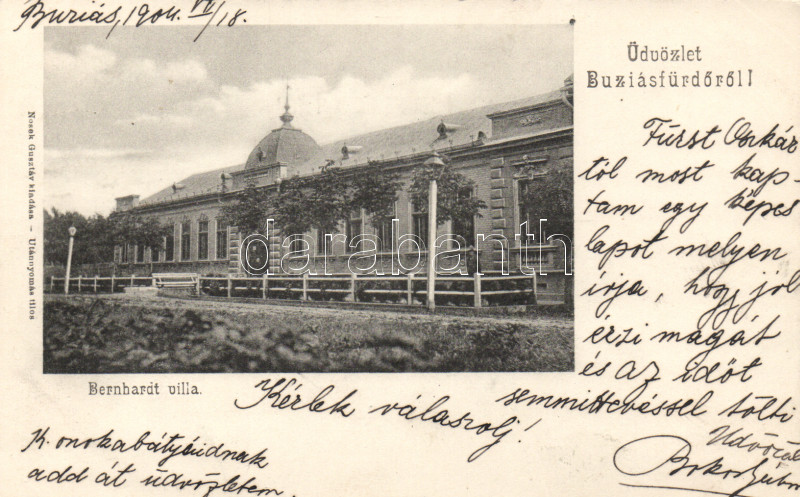 Buziás, 1904. VII/18.
Üdvözlet
Buziásfürdőről!
Fürst Oszkár
tól most kap-
tam egy képes
lapot melyen
írja, hogy jól
érzi magát
és az időt
semmittevéssel tölti
Üdvözöl
Nosek Gusztáv kiadása - Utánnyomás tilos
darabanth
Bernhardt villa.
Kérlek válaszolj!
add át üdvözletem.